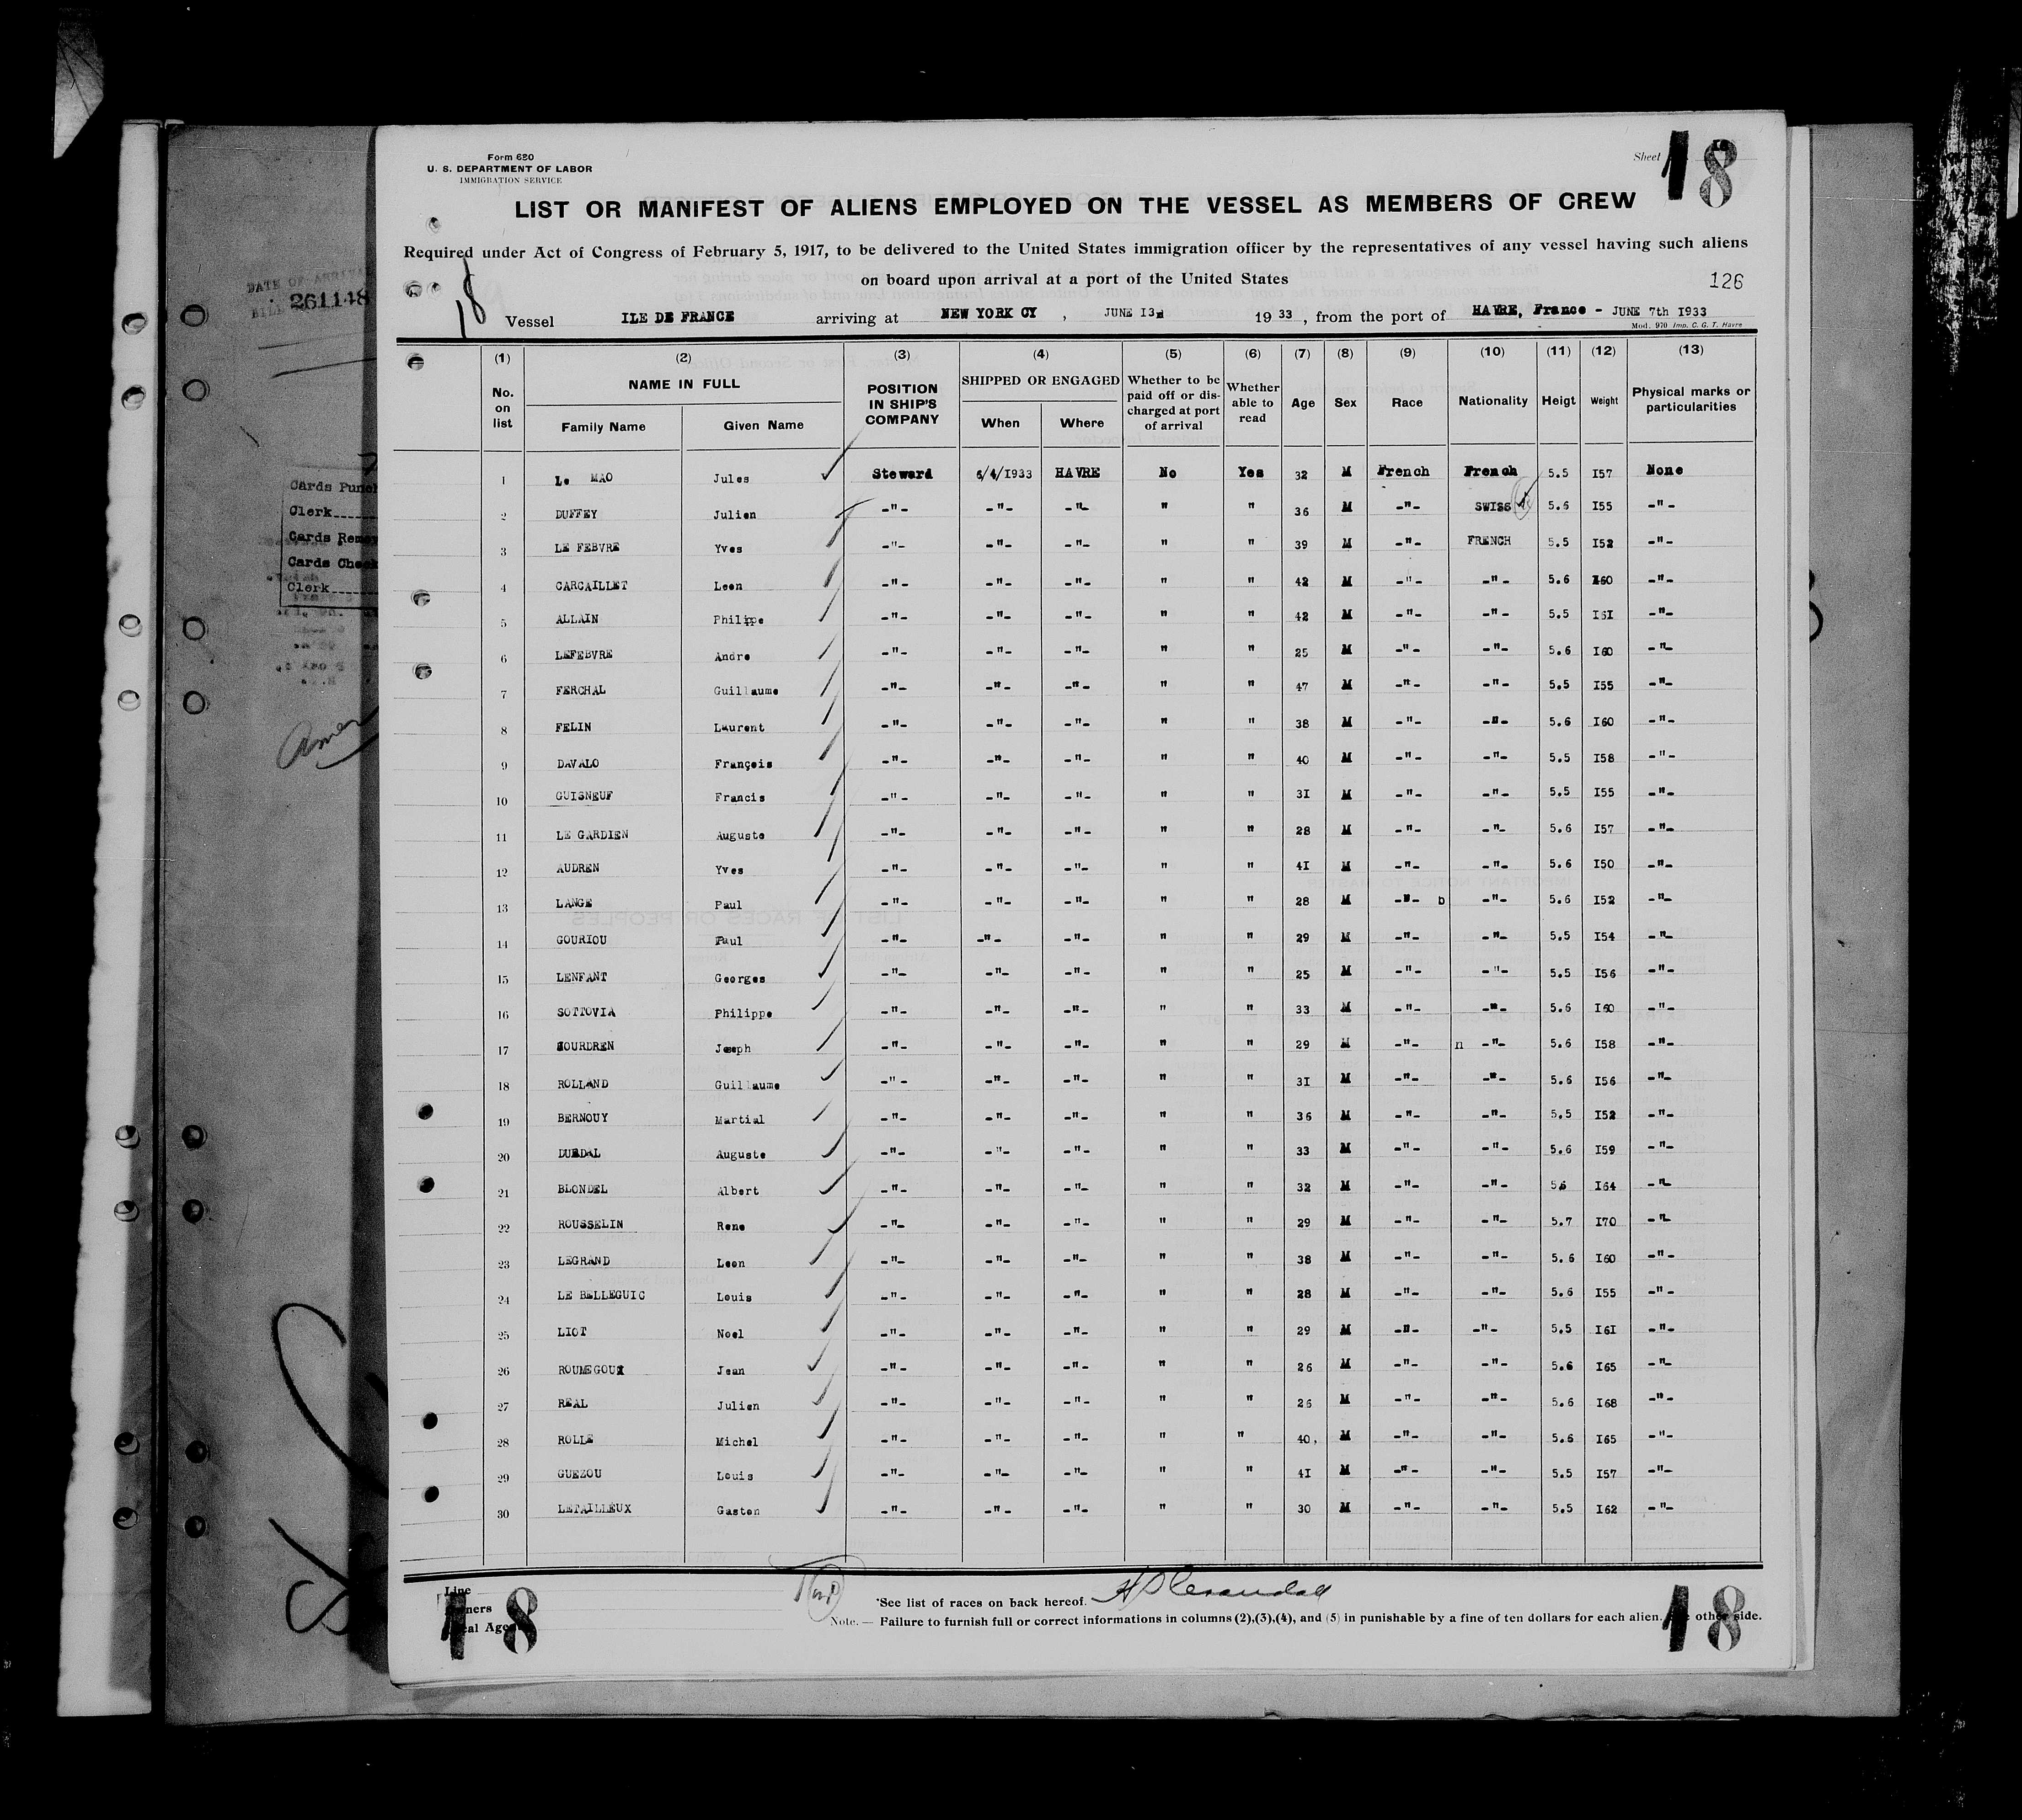 Form 680
U. S. DEPARTMENT OF LABOR
IMMIGRATION SERVICE
Sheet
18
LIST OR MANIFEST OF ALIENS EMPLOYED ON THE VESSEL AS MEMBERS OF CREW
Required under Act of Congress of February 5, 1917, to be delivered to the United States immigration officer by the representatives of any vessel having such aliens
on board upon arrival at a port of the United States
126
18
Vessel ILE DE FRANCE arriving at NEW YORK CY , JUNE I3 19 33 , from the port of HAVRE, France - JUNE 7th I933
Mod. 970 Imp. C. G. T. Havre
DATE OF ARRIVAL
261148
Cards Punch
Clerk
Cards Remov
Cards Check
Clerk
(1) (2) (3) (4) (5) (6) (7) (8) (9) (10) (11) (12) (13)
No. on list NAME IN FULL Family Name Given Name POSITION IN SHIP'S COMPANY SHIPPED OR ENGAGED When Where Whether to be paid off or discharged at port of arrival Whether able to read Age Sex Race Nationality Heigt Weight Physical marks or particularities
1 Le MAO Jules Steward 6/4/I933 HAVRE No Yes 32 M French French 5.5 I57 None
2 DUFFEY Julien -"- -"- -"- " " 36 M -"- SWISS 5.6 I55 -"-
3 LE FEBVRE Yves -"- -"- -"- " " 39 M -"- FRENCH 5.5 I52 -"-
4 CARCAILLET Leon -"- -"- -"- " " 42 M -"- -"- 5.6 I60 -"-
5 ALLAIN Philippe -"- -"- -"- " " 42 M -"- -"- 5.5 I6I -"-
6 LEFEBVRE Andre -"- -"- -"- " " 25 M -"- -"- 5.6 I60 -"-
7 FERCHAL Guillaume -"- -"- -"- " " 47 M -"- -"- 5.5 I55 -"-
8 FELIN Laurent -"- -"- -"- " " 38 M -"- -"- 5.6 I60 -"-
9 DAVALO François -"- -"- -"- " " 40 M -"- -"- 5.5 I58 -"-
10 GUISNEUF Francis -"- -"- -"- " " 3I M -"- -"- 5.5 I55 -"-
11 LE GARDIEN Auguste -"- -"- -"- " " 28 M -"- -"- 5.6 I57 -"-
12 AUDREN Yves -"- -"- -"- " " 4I M -"- -"- 5.6 I50 -"-
13 LANGE Paul -"- -"- -"- " " 28 M -"- b -"- 5.6 I52 -"-
14 GOURIOU Paul -"- -"- -"- " " 29 M -"- -"- 5.5 I54 -"-
15 LENFANT Georges -"- -"- -"- " " 25 M -"- -"- 5.5 I56 -"-
16 SOTTOVIA Philippe -"- -"- -"- " " 33 M -"- -"- 5.6 I60 -"-
17 Joseph -"- -"- -"- " " 29 M -"- n -"- 5.6 I58 -"-
18 ROLLAND Guillaume -"- -"- -"- " " 3I M -"- -"- 5.6 I56 -"-
19 BERNOUY Martial -"- -"- -"- " " 36 M -"- -"- 5.5 I52 -"-
20 Auguste -"- -"- -"- " " 33 M -"- -"- 5.6 I59 -"-
21 BLONDEL Albert -"- -"- -"- " " 32 M -"- -"- 5.6 I64 -"-
22 ROUSSELIN Rene -"- -"- -"- " " 29 M -"- -"- 5.7 I70 -"-
23 LEGRAND Leon -"- -"- -"- " " 38 M -"- -"- 5.6 I60 -"-
24 LE BELLEGUIC Louis -"- -"- -"- " " 28 M -"- -"- 5.6 I55 -"-
25 LIOT Noel -"- -"- -"- " " 29 M -"- -"- 5.5 I6I -"-
26 ROUMEGOUX Jean -"- -"- -"- " " 26 M -"- -"- 5.6 I65 -"-
27 REAL Julien -"- -"- -"- " " 26 M -"- -"- 5.6 I68 -"-
28 ROLLE Michel -"- -"- -"- " " 40, M -"- -"- 5.6 I65 -"-
29 GUEZOU Louis -"- -"- -"- " " 4I M -"- -"- 5.5 I57 -"-
30 LETAILLEUX Gaston -"- -"- -"- " " 30 M -"- -"- 5.5 I62 -"-
Line
18
*See list of races on back hereof.
Note. — Failure to furnish full or correct informations in columns (2),(3),(4), and (5) in punishable by a fine of ten dollars for each alien. other side.
18